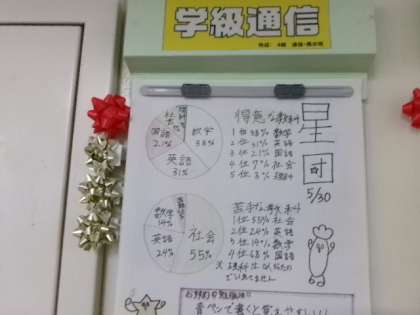 学級通信
星団
5/30
得意な教科
1位 38% 数学
2位 31% 英語
3位 21% 国語
4位 7% 社会
5位 3% 理科
数学
38%
英語
31%
国語
21%
社会
7%
苦手な教科
1位 55% 社会
2位 24% 英語
3位 14% 数学
4位 6.8% 国語
社会
55%
英語
24%
数学
14%
青ペンで書くと覚えやすい!!